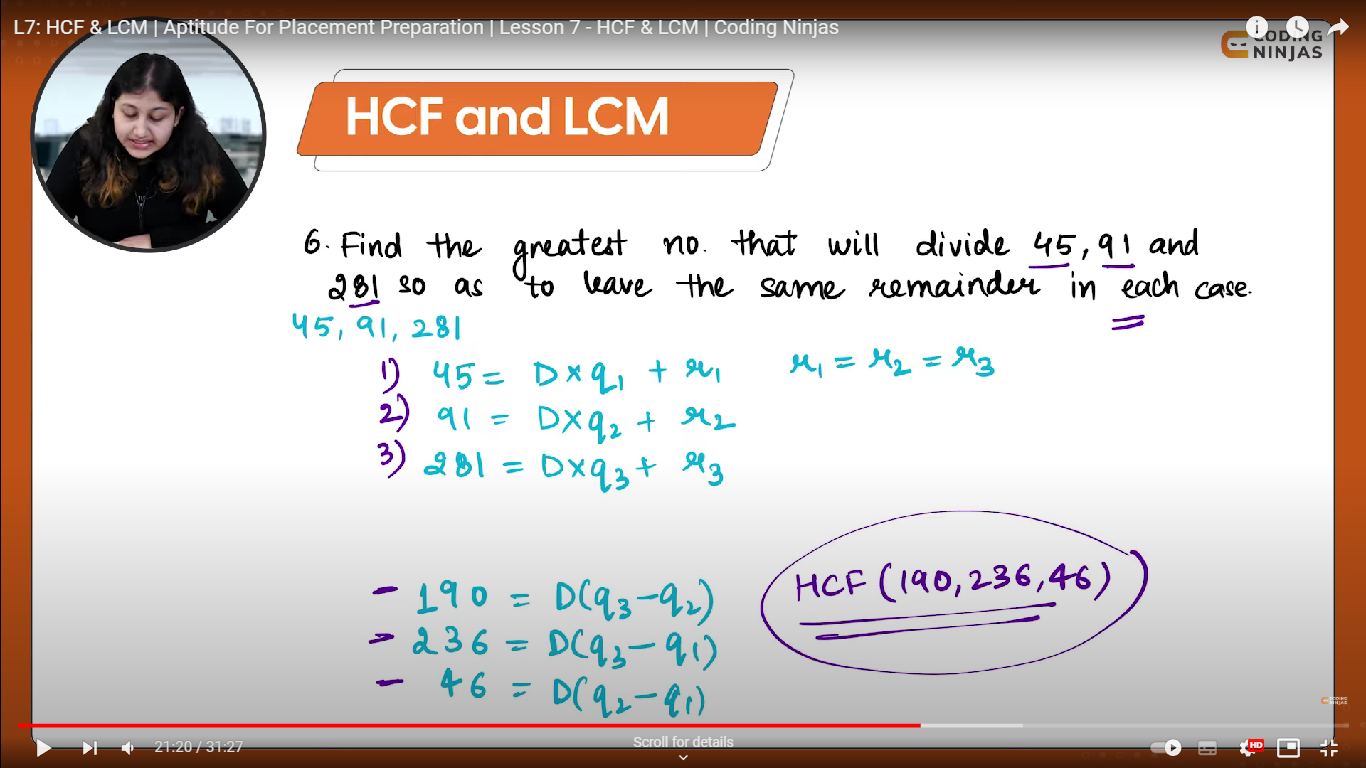 L7: HCF & LCM | Aptitude For Placement Preparation | Lesson 7 - HCF & LCM | Coding Ninjas
CODING
NINJAS
HCF and LCM
6. Find the greatest no. that will divide 45, 91 and
281 so as to leave the same remainder in each case.
45, 91, 281
1) 45 = D×q1 + r1 r1 = r2 = r3
2) 91 = D×q2 + r2
3) 281 = D×q3 + r3
- 190 = D(q3-q2)
HCF (190, 236, 46)
- 236 = D(q3-q1)
- 46 = D(q2-q1)
CODING
NINJAS
21:20 / 31:27
Scroll for details
HD